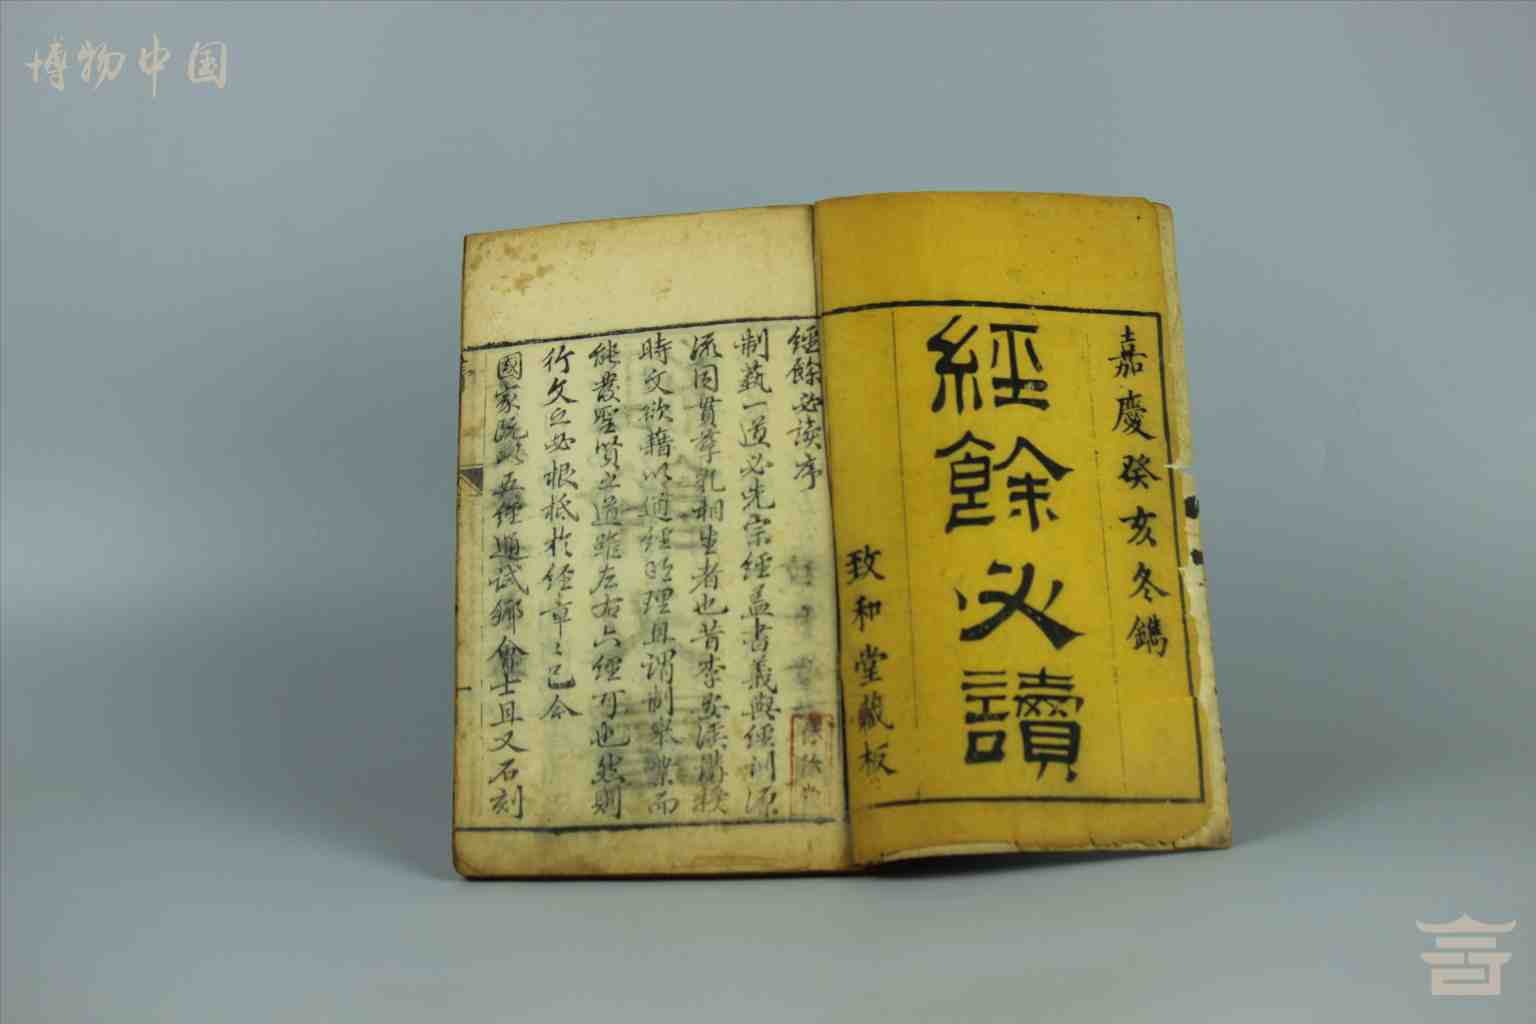 博物中国
嘉慶癸亥冬鐫
經餘必讀
致和堂藏板
經餘必读序
制藝一道必先宗經盖書義與經訓源
流同貫孳乳相生者也昔李安溪講授
時文欲藉以通經明理且謂制舉業而
能發聖賢之道雖左右六經可也然則
行文之必根柢於经章〻已今
國家既以五經通試鄉會士且又石刻